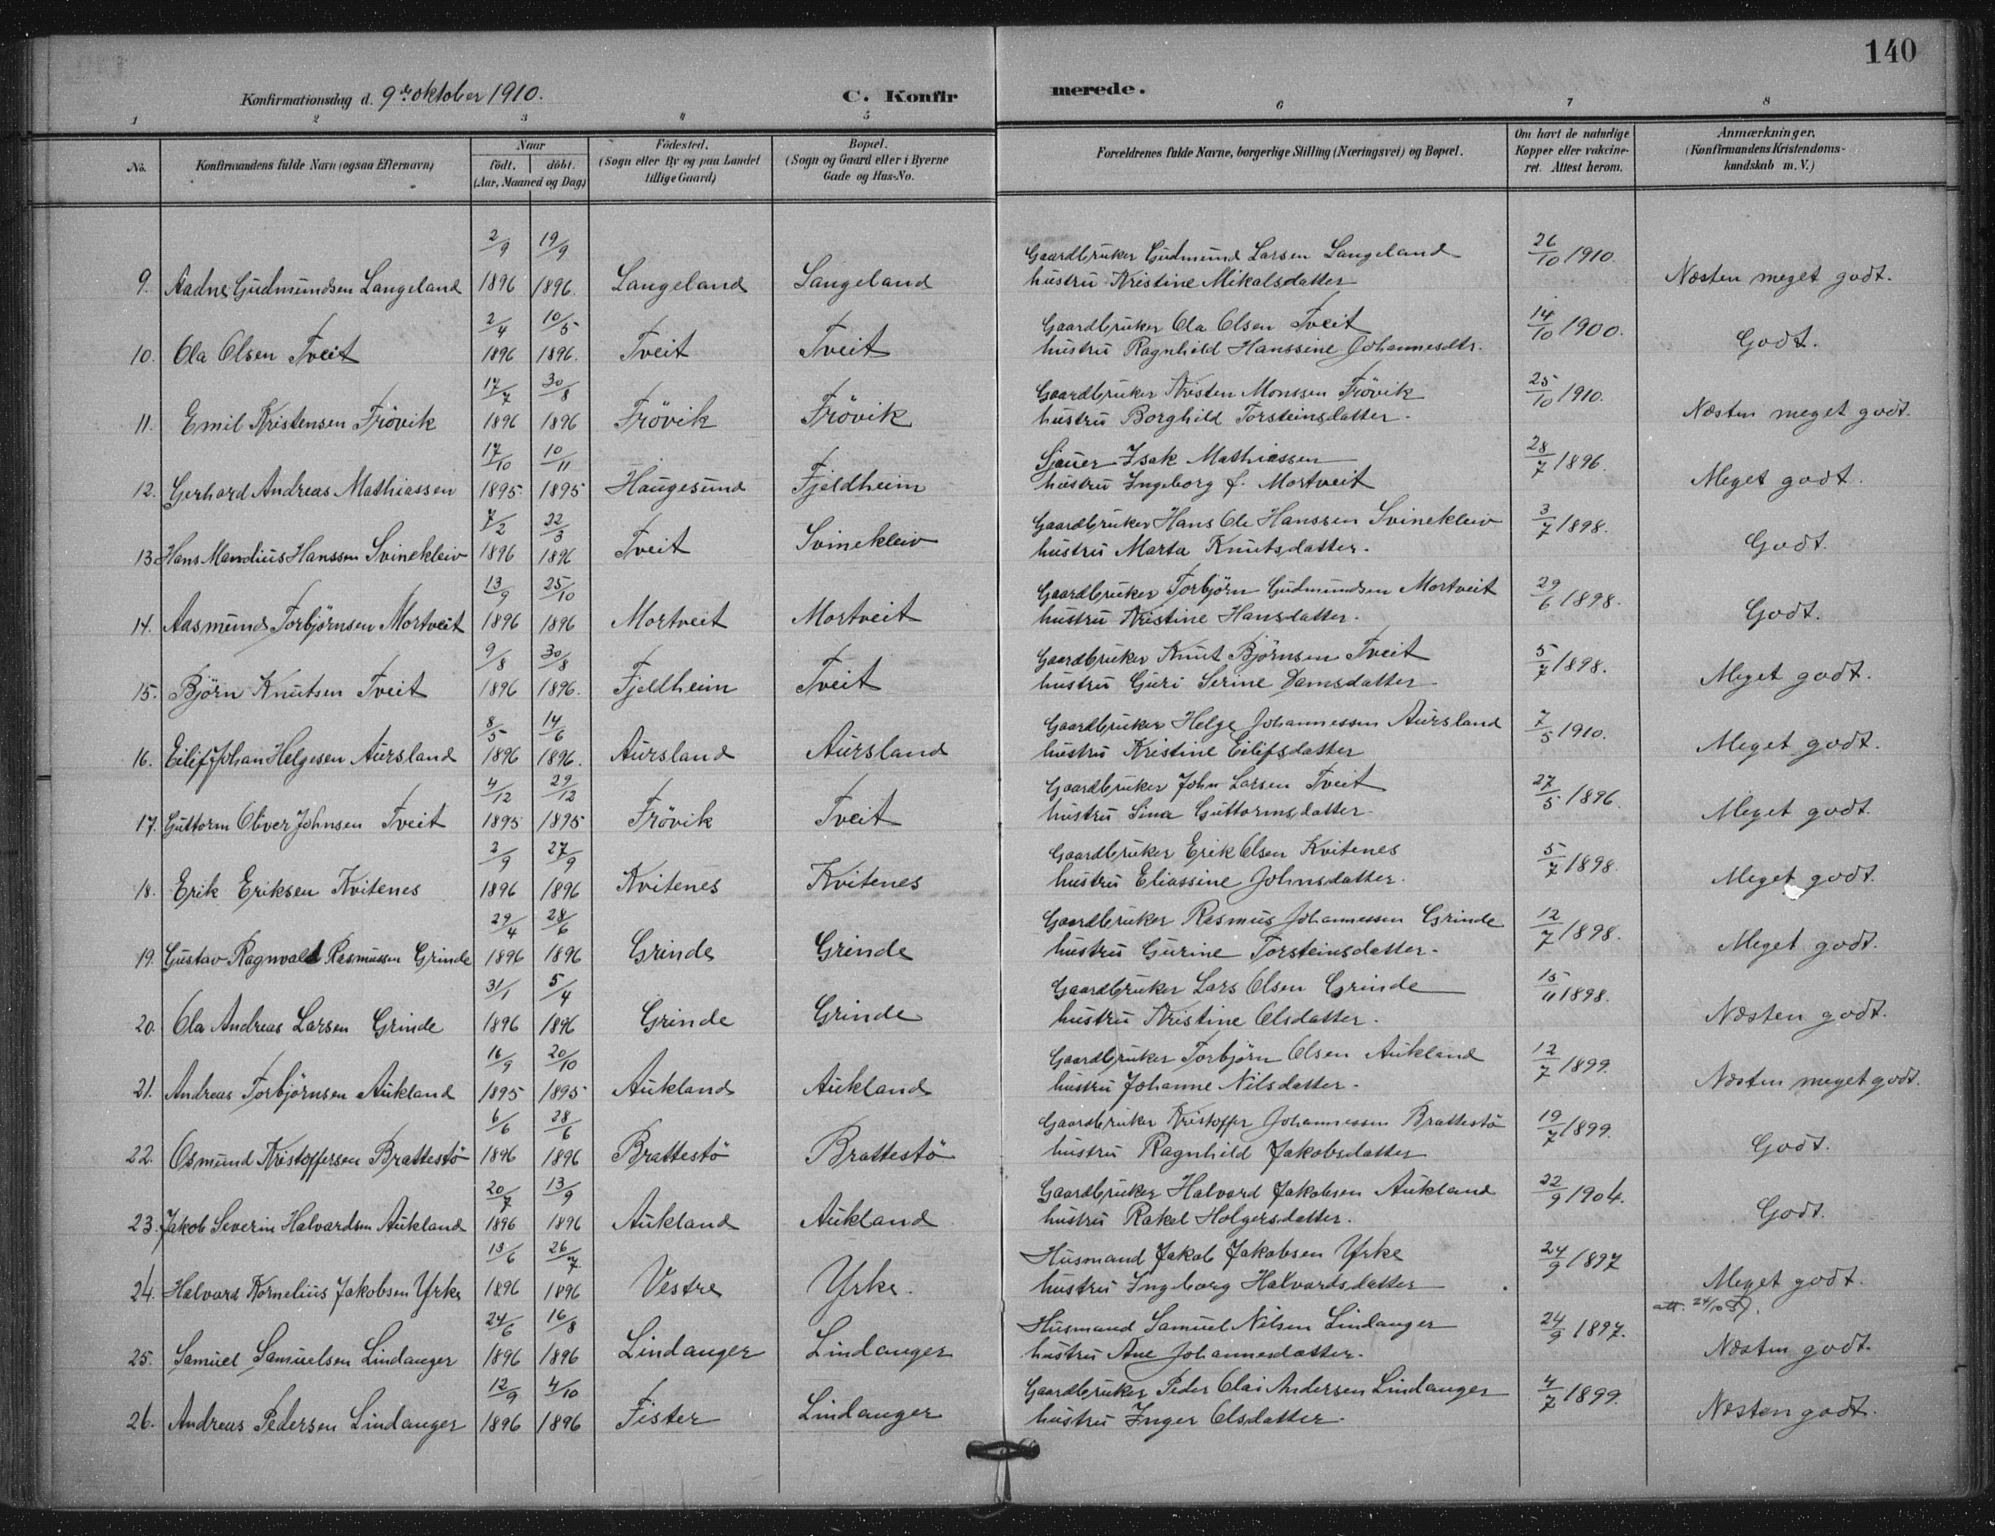 140
Konfirmationsdag d. 9de oktober 1910. C. Konfirmerede.
1 2 3 4 5 6 7 8
No. Konfirmandens fulde Navn (ogsaa Efternavn) Naar født. døbt. (Aar, Maaned og Dag) Fødested. (Sogn eller By og paa Landet tillige Gaard) Bopæl. (Sogn og Gaard eller i Byerne Gade og Hus-No. Forældrenes fulde Navne, borgerlige Stilling (Næringsvei) og Bopæl. Om havt de naturlige Kopper eller vakcineret. Attest herom. Anmærkninger. (Konfirmandens Kristendomskundskab m. V.)
2/9 19/9 Gaardbruker Gudmund Larsen Langeland 26/10 1910.
9. Aadne Gudmundsen Langeland 1896 1896. Langeland Langeland hustru Kristine Mikalsdatter Næsten meget godt.
2/4 10/5 Gaardbruker Ola Olsen Tveit 14/10 1900.
10. Ola Olsen Tveit 1896 1896. Tveit Tveit hustru Ragnhild Hanssine Johannesdtr. Godt.
17/7 30/8 Gaardbruker Kristen Monssen Frövik 25/10 1910.
11. Emil Kristensen Frövik 1896 1896 Frövik Frövik hustru Borghild Torsteinsdatter. Næsten meget godt.
17/10 10/11 Sjauer Isak Mathiassen 28/7 1896.
12. Gerhard Andreas Mathiassen 1895 1895 Haugesund Fjeldheim hustru Ingeborg f. Mortveit Meget godt.
7/2 22/3 Gaardbruker Hans Ole Hanssen Svinekleiv 3/7 1898.
13. Hans Mandius Hanssen Svinekleiv 1896 1896 Tveit Svinekleiv hustru Marta Knutsdatter. Godt.
13/9 25/10 Gaardbruker Torbjørn Gudmundsen Mortveit 29/6 1898.
14. Aasmund Torbjørnsen Mortveit 1896 1896 Mortveit Mortveit hustru Kristine Hansdatter. Godt.
9/8 30/8 Gaardbruker Knut Björnsen Tveit 5/7 1898.
15. Björn Knutsen Tveit 1896 1896. Fjeldheim Tveit hustru Guri Serine Damsdatter. Meget godt.
8/5 14/6 Gaardbruker Helge Johannessen Aursland 7/5 1910.
16. Eilif Johan Helgesen Aursland 1896 1896. Aursland Aursland hustru Kristine Eilifsdatter Meget godt.
4/12 29/12 Gaardbruker John Larsen Tveit 27/5 1896.
17. Guttorm Oliver Johnsen Tveit 1895 1895 Frövik Tveit hustru Sina Guttormsdatter. Meget godt.
2/9 27/9 Gaardbruker Erik Olsen Kvitenes 5/7 1898.
18. Erik Eriksen Kvitenes 1896 1896 Kvitenes Kvitenes hustru Eliassine Johnsdatter. Meget godt.
29/4 28/6 Gaardbruker Rasmus Johannessen Grinde 12/7 1898.
19. Gustav Ragnvald Rasmussen Grinde 1896 1896 Grinde Grinde hustru Gurine Torsteinsdatter. Meget godt.
31/1 5/4 Gaardbruker Lars Olsen Grinde 15/11 1898.
20. Ola Andreas Larsen Grinde 1896 1896 Grinde Grinde hustru Kristine Olsdatter. Næsten godt.
16/9 20/10 Gaardbruker Torbjörn Olsen Aukland 12/7 1899.
21. Andreas Torbjörnsen Aukland 1895 1895 Aukland Aukland hustru Johanne Nilsdatter. Næsten meget godt.
6/6 28/6 Gaardbruker Kristoffer Johannessen Brattestö 19/7 1899.
22. Osmund Kristoffersen Brattestö 1896 1896 Brattestö Brattestö hustru Ragnhild Jakobsdatter Godt.
20/7 13/9 Gaardbruker Halvard Jakobsen Aukland 22/9 1904.
23. Jakob Severin Halvardsen Aukland 1896 1896 Aukland Aukland hustru Rakel Holgersdatter. Godt.
13/6 26/7 Husmand Jakob Jakobsen Yrke 24/9 1897
24. Halvard Kornelius Jakobsen Yrke 1896 1896 Vestre Yrke. hustru Ingeborg Halvardsdatter Meget godt.
24/6 16/8 Husmand Samuel Nilsen Lindanger 24/9 1897.
25. Samuel Samuelsen Lindanger 1896 1896 Lindanger Lindanger hustru Ane Johannesdatter. Næsten godt.
12/9 4/10 Gaardbruker Peder Olai Andersen Lindanger 4/7 1899.
26. Andreas Pedersen Lindanger 1896 1896 Fister Lindanger hustru Inger Olsdatter. Næsten godt.